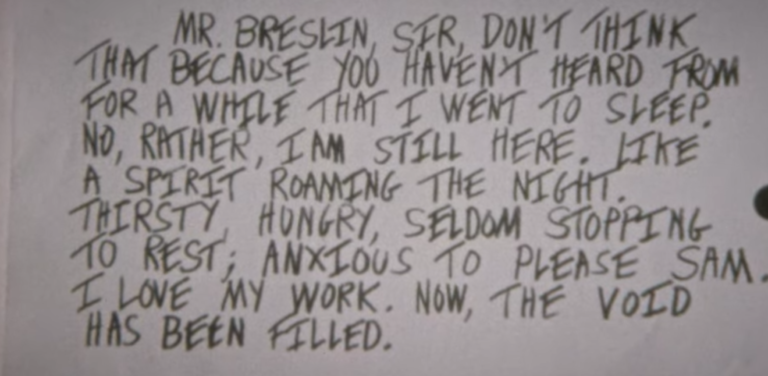 MR. BRESLIN, SIR, DON'T THINK
THAT BECAUSE YOU HAVEN'T HEARD FROM
FOR A WHILE THAT I WENT TO SLEEP.
NO, RATHER, I AM STILL HERE. LIKE
A SPIRIT ROAMING THE NIGHT.
THIRSTY, HUNGRY, SELDOM STOPPING
TO REST; ANXIOUS TO PLEASE SAM.
I LOVE MY WORK. NOW, THE VOID
HAS BEEN FILLED.